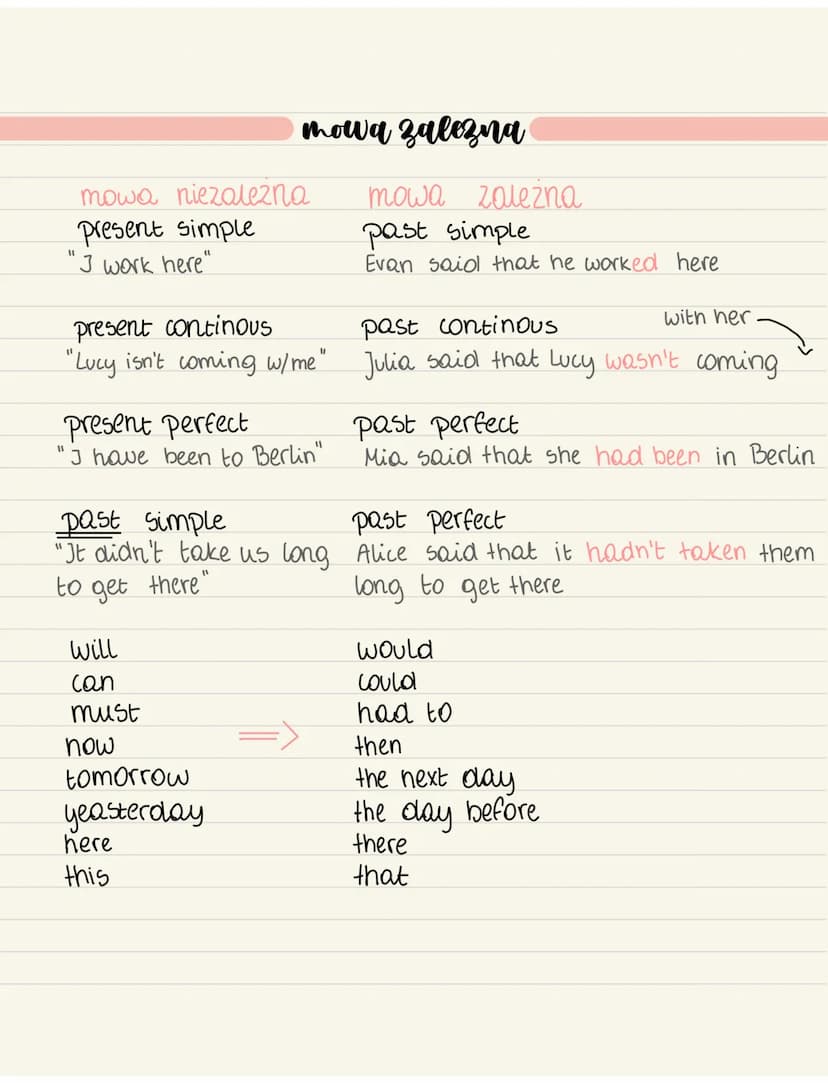 mowa zależna
mowa niezależna mowa zależna
present simple past simple
"I work here" Evan said that he worked here
present continous past continous with her
"Lucy isn't coming w/me" Julia said that Lucy wasn't coming
present perfect past perfect
"I have been to Berlin" Mia said that she had been in Berlin
past simple past perfect
"It didn't take us long Alice said that it hadn't taken them
to get there" long to get there
will would
can could
must had to
now then
tomorrow the next day
yeasterday the day before
here there
this that